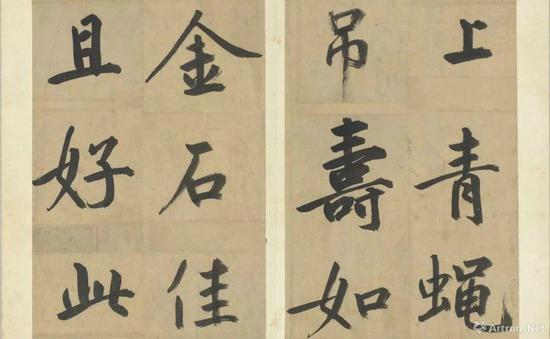 上青蝇
吊壽如
金石佳
且好此
Artron.Net